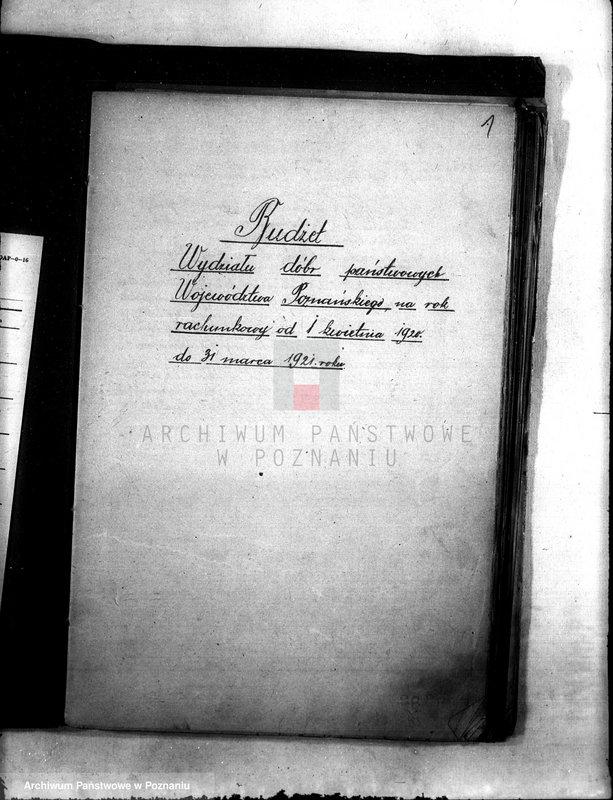 1
Budżet
Wydziału dóbr państwowych
Województwa Poznańskiego, na rok
rachunkowy od 1 kwietnia 1920.
do 31 marca 1921. roku
DAP-0-16
ARCHIWUM PAŃSTWOWE
W POZNANIU
Archiwum Państwowe w Poznaniu